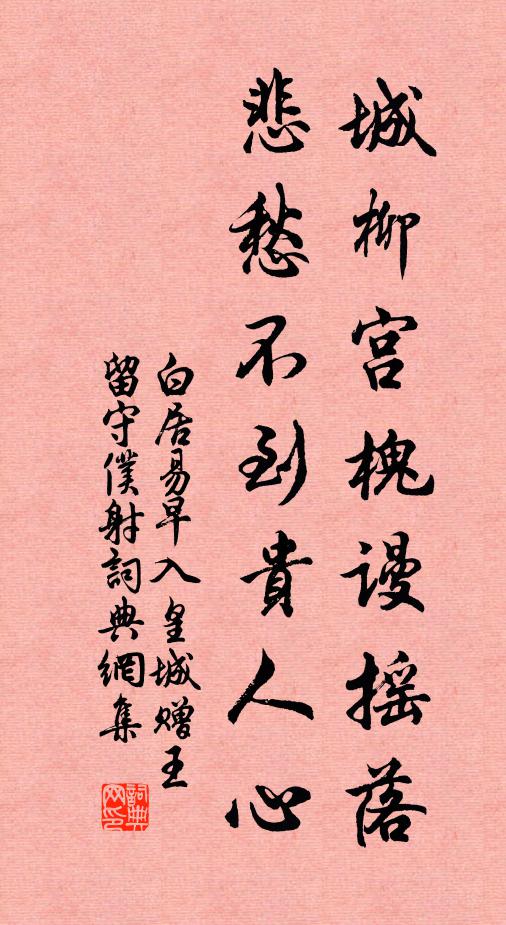 城柳宮槐謾摇落
悲愁不到貴人心
白居易早入皇城赠王
留守僕射詞典網集
詞典网印